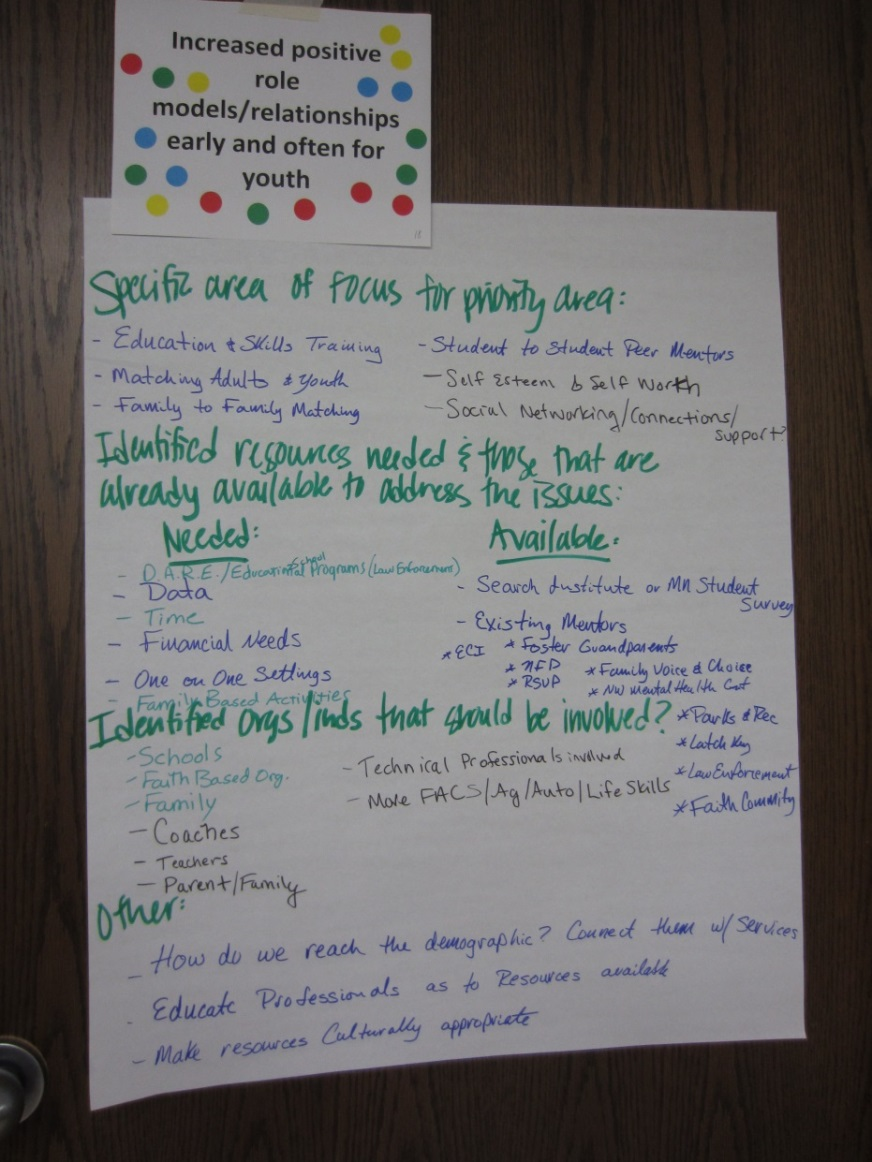 Increased positive
role
models/relationships
early and often for
youth
18
Specific area of focus for priority area:
- Education & Skills Training
- Matching Adults & Youth
- Family to Family Matching
- Student to Student Peer Mentors
- Self Esteem & Self Worth
- Social Networking/Connections/
support?
Identified resources needed & those that are
already available to address the issues:
Needed:
- D.A.R.E./Educational School Programs (Law Enforcement)
- Data
- Time
- Financial Needs
- One on One Settings
- Family Based Activities
Available:
- Search Institute or MN Student
Survey
- Existing Mentors
* ECI * Foster Grandparents
* NFP * Family Voice & Choice
* RSVP * NW Mental Health Cnt
* Parks & Rec
* Latch Key
* Law Enforcement
* Faith Commity
Identified Orgs/inds that should be involved?
- Schools
- Faith Based Org.
- Family
- Coaches
- Teachers
- Parent/Family
- Technical Professionals involved
- More FACS/Ag/Auto/Life Skills
Other:
- How do we reach the demographic? Connect them w/ Services
- Educate Professionals as to Resources available
- Make resources Culturally appropriate